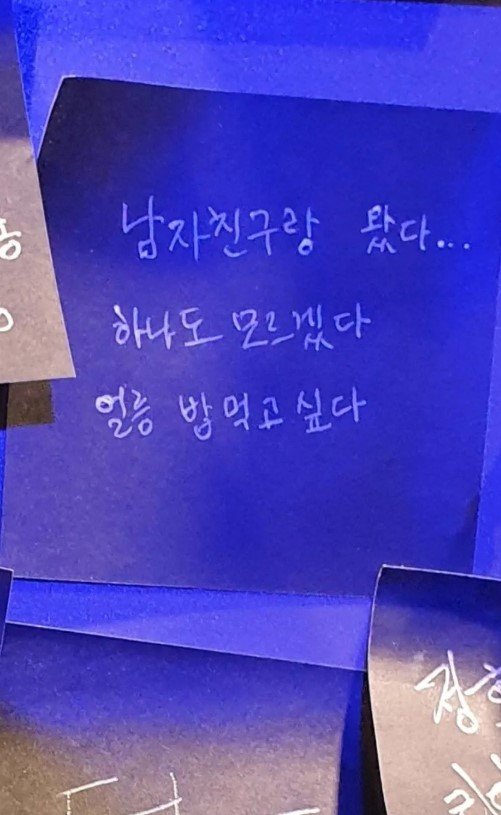 남자친구랑 왔다...
하나도 모르겠다
얼릉 밥먹고싶다